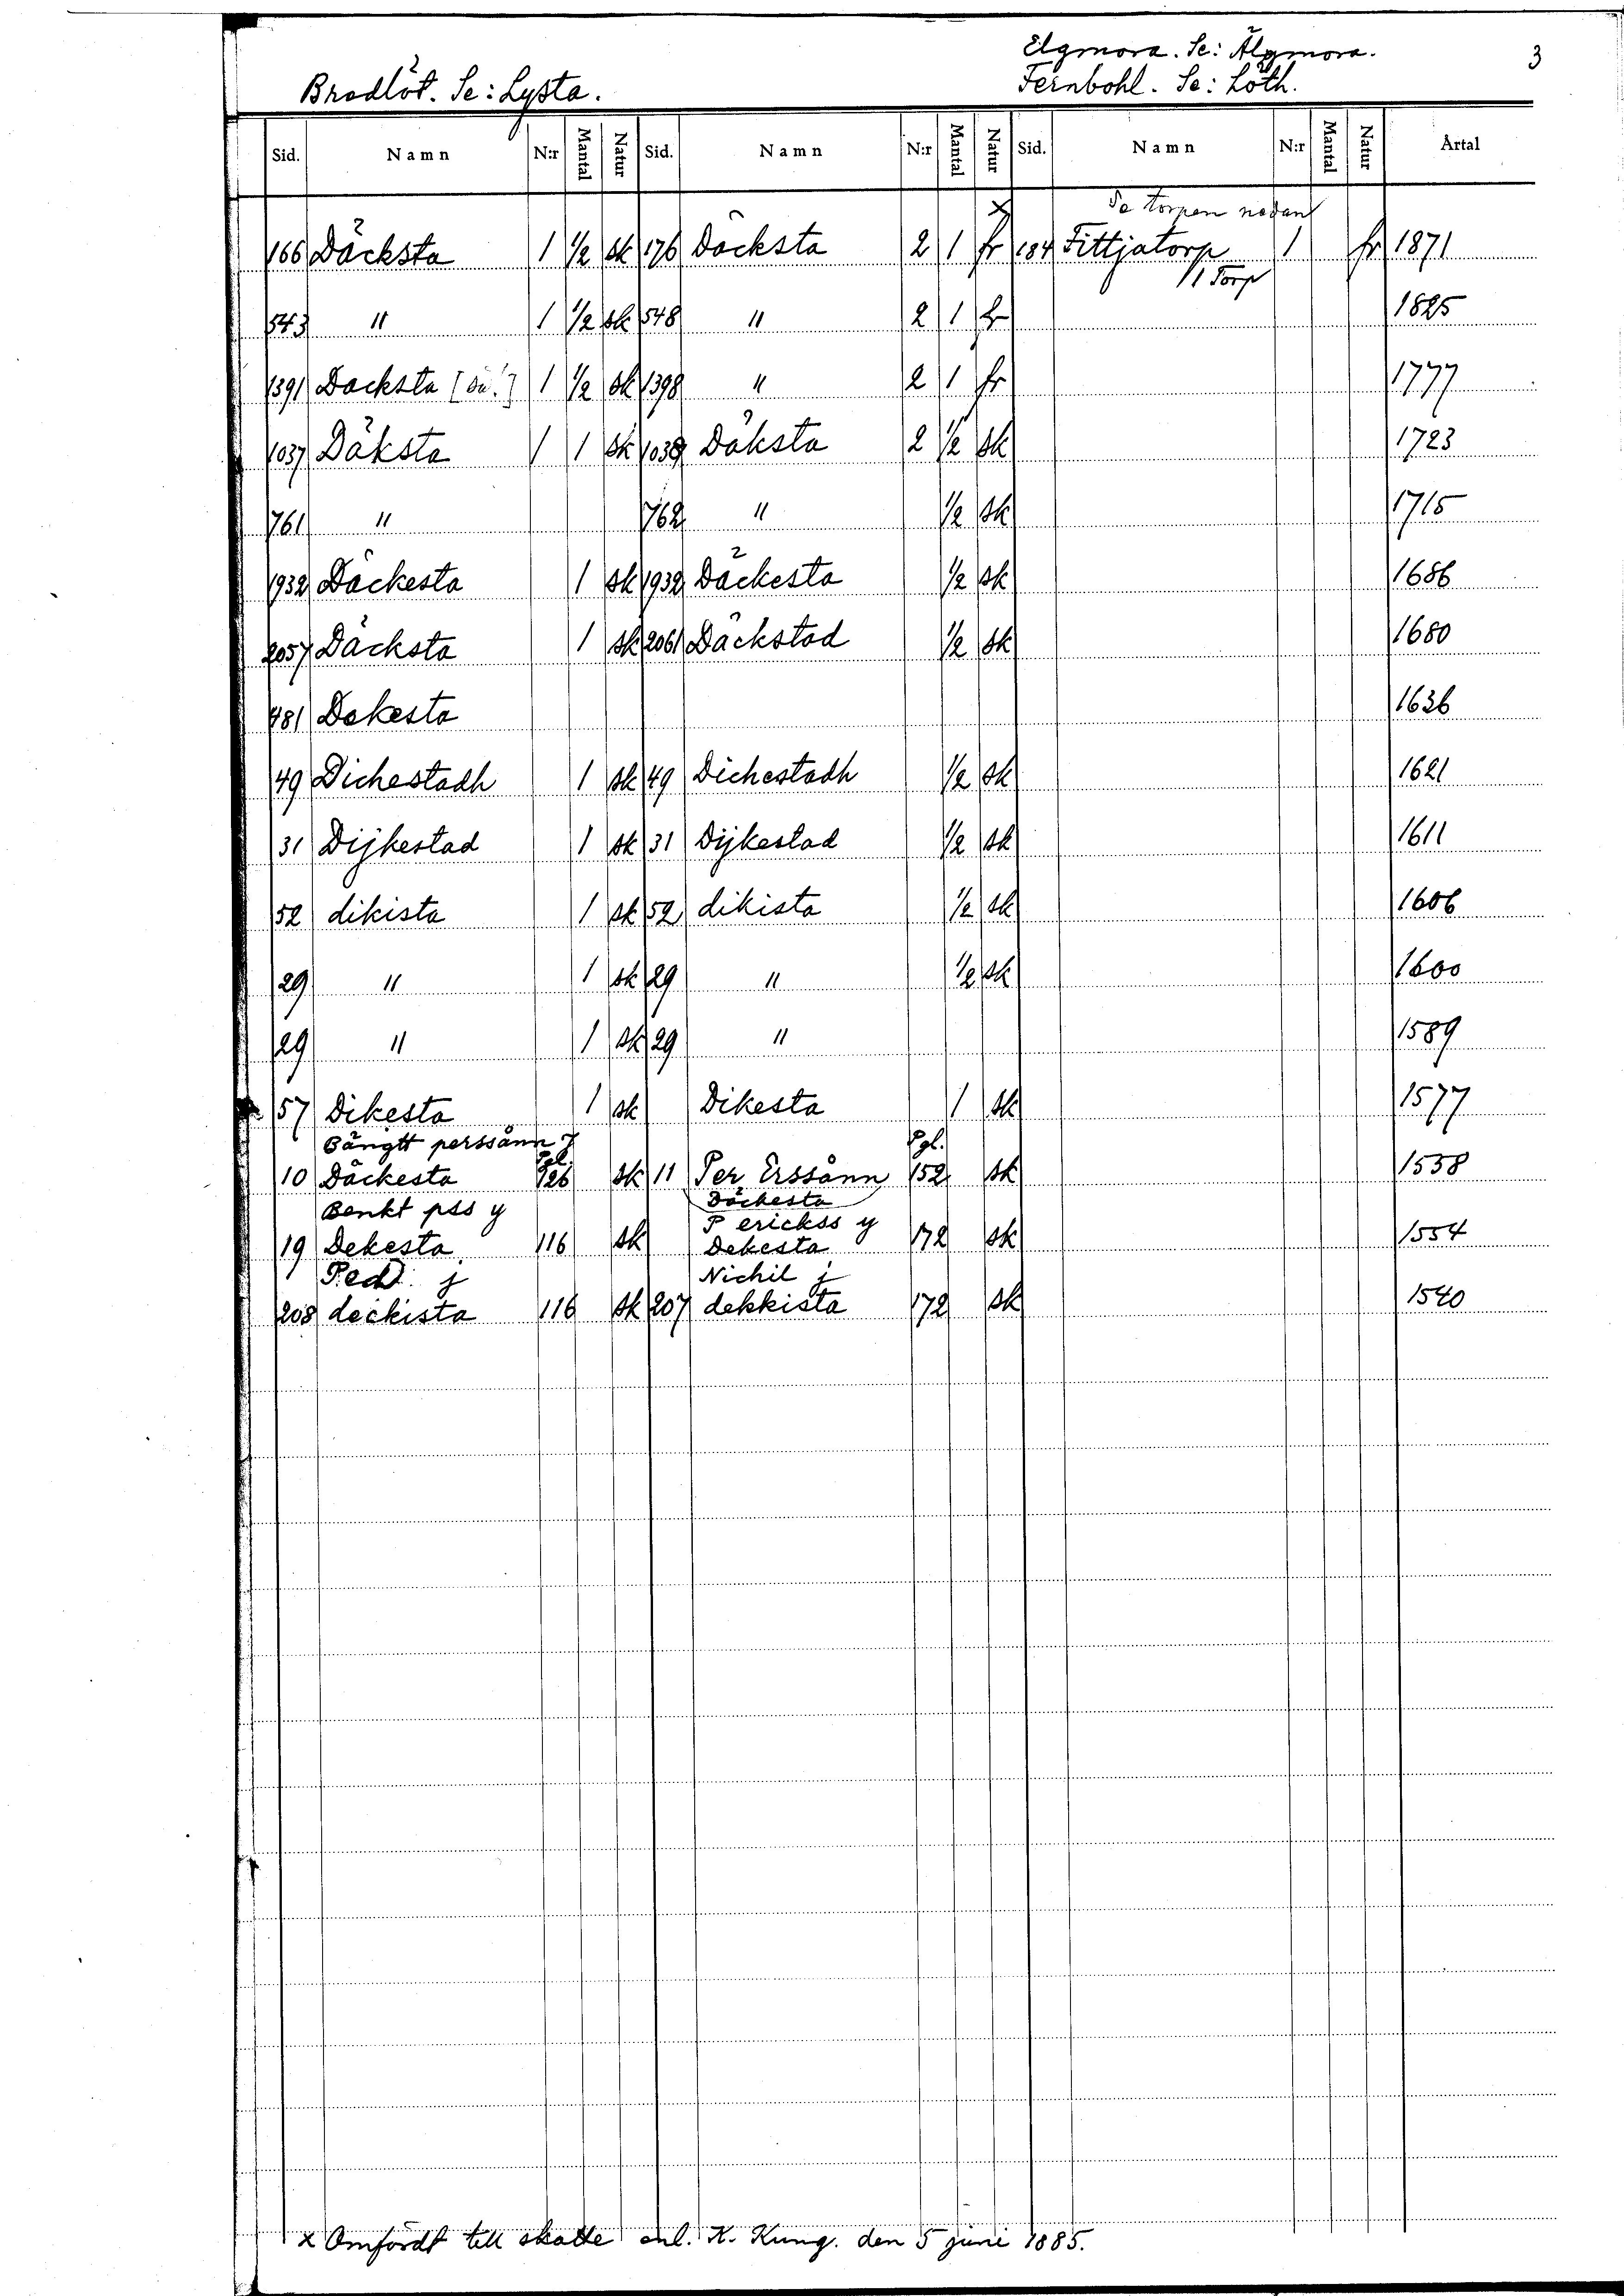 Elgmora. Se: Älgmora. 3
Brodlöt. Se: Lysta. Fernbohl. Se: Löth.
Sid. Namn N:r Mantal Natur Sid. Namn N:r Mantal Natur Sid. Namn N:r Mantal Natur Årtal
x Se torpen nedan
166 Däcksta 1 1/2 sk 176 Däcksta 2 1 fr 184 Fittjatorp 1 fr 1871
1 Torp
543 " 1 1/2 sk 548 " 2 1 fr 1825
1391 Dacksta [så!] 1 1/2 sk 1398 " 2 1 fr 1777
1037 Däksta 1 1 sk 1038 Däksta 2 1/2 sk 1723
761 " 762 " 1/2 sk 1715
1932 Däckesta 1 sk 1932 Däckesta 1/2 sk 1686
2057 Däcksta 1 sk 2061 Däckstad 1/2 sk 1680
481 Dekesta 1636
49 Dichestadh 1 sk 49 Dichestadh 1/2 sk 1621
31 Dijkestad 1 sk 31 Dijkestad 1/2 sk 1611
52 dikista 1 sk 52 dikista 1/2 sk 1606
29 " 1 sk 29 " 1/2 sk 1600
29 " 1 sk 29 " 1589
57 Dikesta 1 sk Dikesta 1 sk 1577
Bängtt perssånn Pgl. Pgl.
10 Däckesta 126 sk 11 Per Erssånn 152 sk 1558
Däckesta
Benkt pss y P erickss y
19 Dekesta 116 sk Dekesta 172 sk 1554
Ped j Nichil j
208 deckista 116 sk 207 dekkista 172 sk 1540
x Omfördt till skatte enl. K. Kung. den 5 juni 1885.